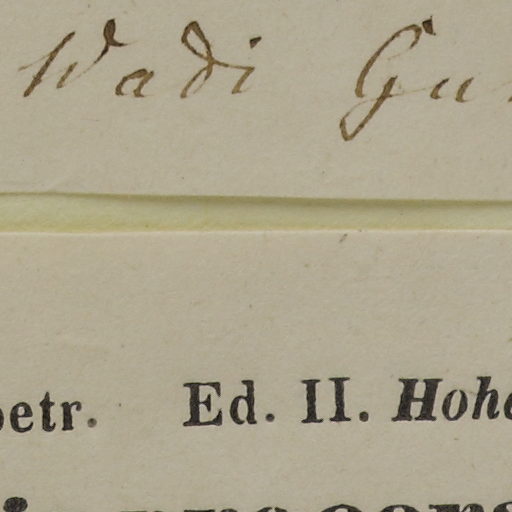 Wadi Gu
petr. Ed. II. Hohe